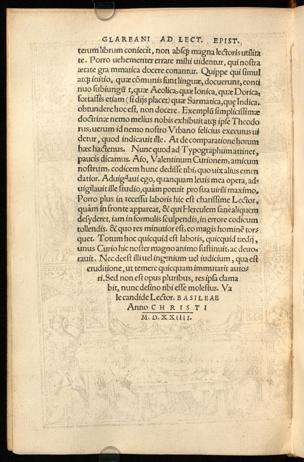 GLAREANI AD LECT. EPIST.
terum librum confecit, non absq; magna lectoris utilita
te. Porro uehementer errare mihi uidentur, qui nostra
ætate gra mmatica docere conantur. Quippe qui simul
atq; initio, quæ cõmunis sunt linguæ, docuerunt, conti
nuo subiungũt, quæ Aeolica, quæ Ionica, quæ Dorica,
fortassis etiam (si dijs placet) quæ Sarmatica, quæ Indica.
obtundere hoc est, non docere. Exemplũ simplicissimæ
doctrinæ nemo melius nobis exhibuit atq; ipse Theodo
rus, uerum id nemo nostro Vrbano felicius executus ui
detur, quod indicauit ille. At de comparatione horum
hæc hactenus. Nunc quod ad Typographum attinet,
paucis dicamus. Aio, Valentinum Curionem, amicum
nostrum, codicem hunc dedisse tibi, quo uix alius emen
datior. Aduigilaui ego, quanquam leuis mea opera, ad-
uigilauit ille studio, quàm potuit pro sua uirili maximo.
Porro plus in recessu laboris hic est charissime Lector,
quàm in fronte appareat, & qui Herculem sanè aliquem
desyderet, tam in formulis sculpendis, in errore codicum
tollendis. & quo res minutior est, eo magis hominẽ tor
quet. Totum hoc quicquid est laboris, quicquid tredij,
unus Curio hic noster magno animo sustinuit, ac deuo-
rauit. Nec deest illi uel ingenium uel iudicium, qua est
eruditione, ut temere quicquam immutarit auto-
ri. Sed non est opus pluribus, res ipsa clama
bit, nunc desino tibi esse molestus. Va
le candide Lector. BASILEAE
Anno CHRISTI
M. D. XXIIII.